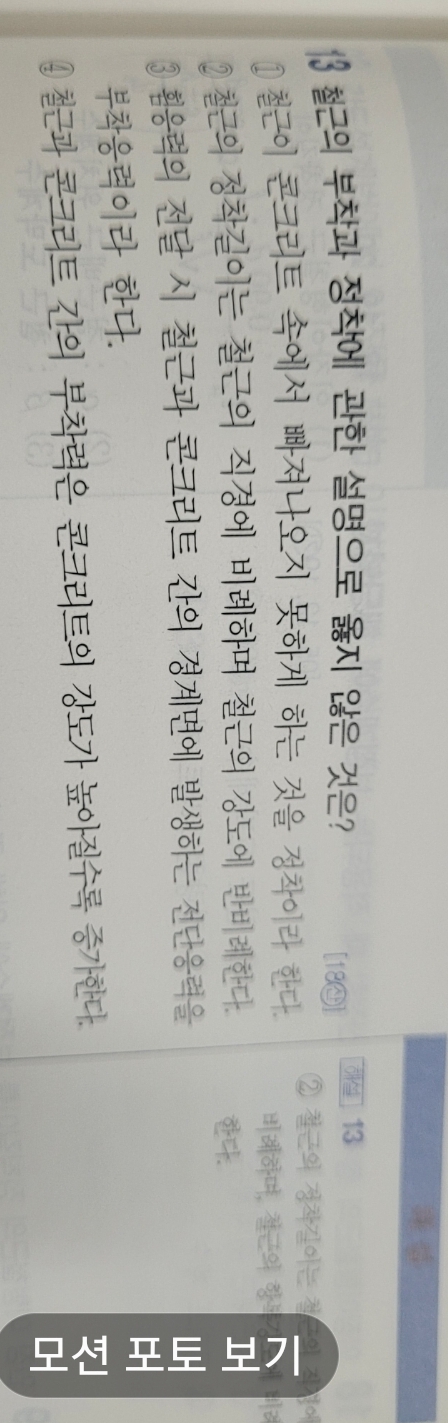 13 철근의 부착과 정착에 관한 설명으로 옳지 않은 것은?
[18산]
① 철근이 콘크리트 속에서 빠져나오지 못하게 하는 것을 정착이라 한다.
② 철근의 정착길이는 철근의 직경에 비례하며 철근의 강도에 반비례한다.
③ 휨응력의 전달 시 철근과 콘크리트 간의 경계면에 발생하는 전단응력을
부착응력이라 한다.
④ 철근과 콘크리트 간의 부착력은 콘크리트의 강도가 높아질수록 증가한다.
해설 13
② 철근의 정착길이는 철근의 직경에
비례하며, 철근의 비례
한다.
모션 포토 보기